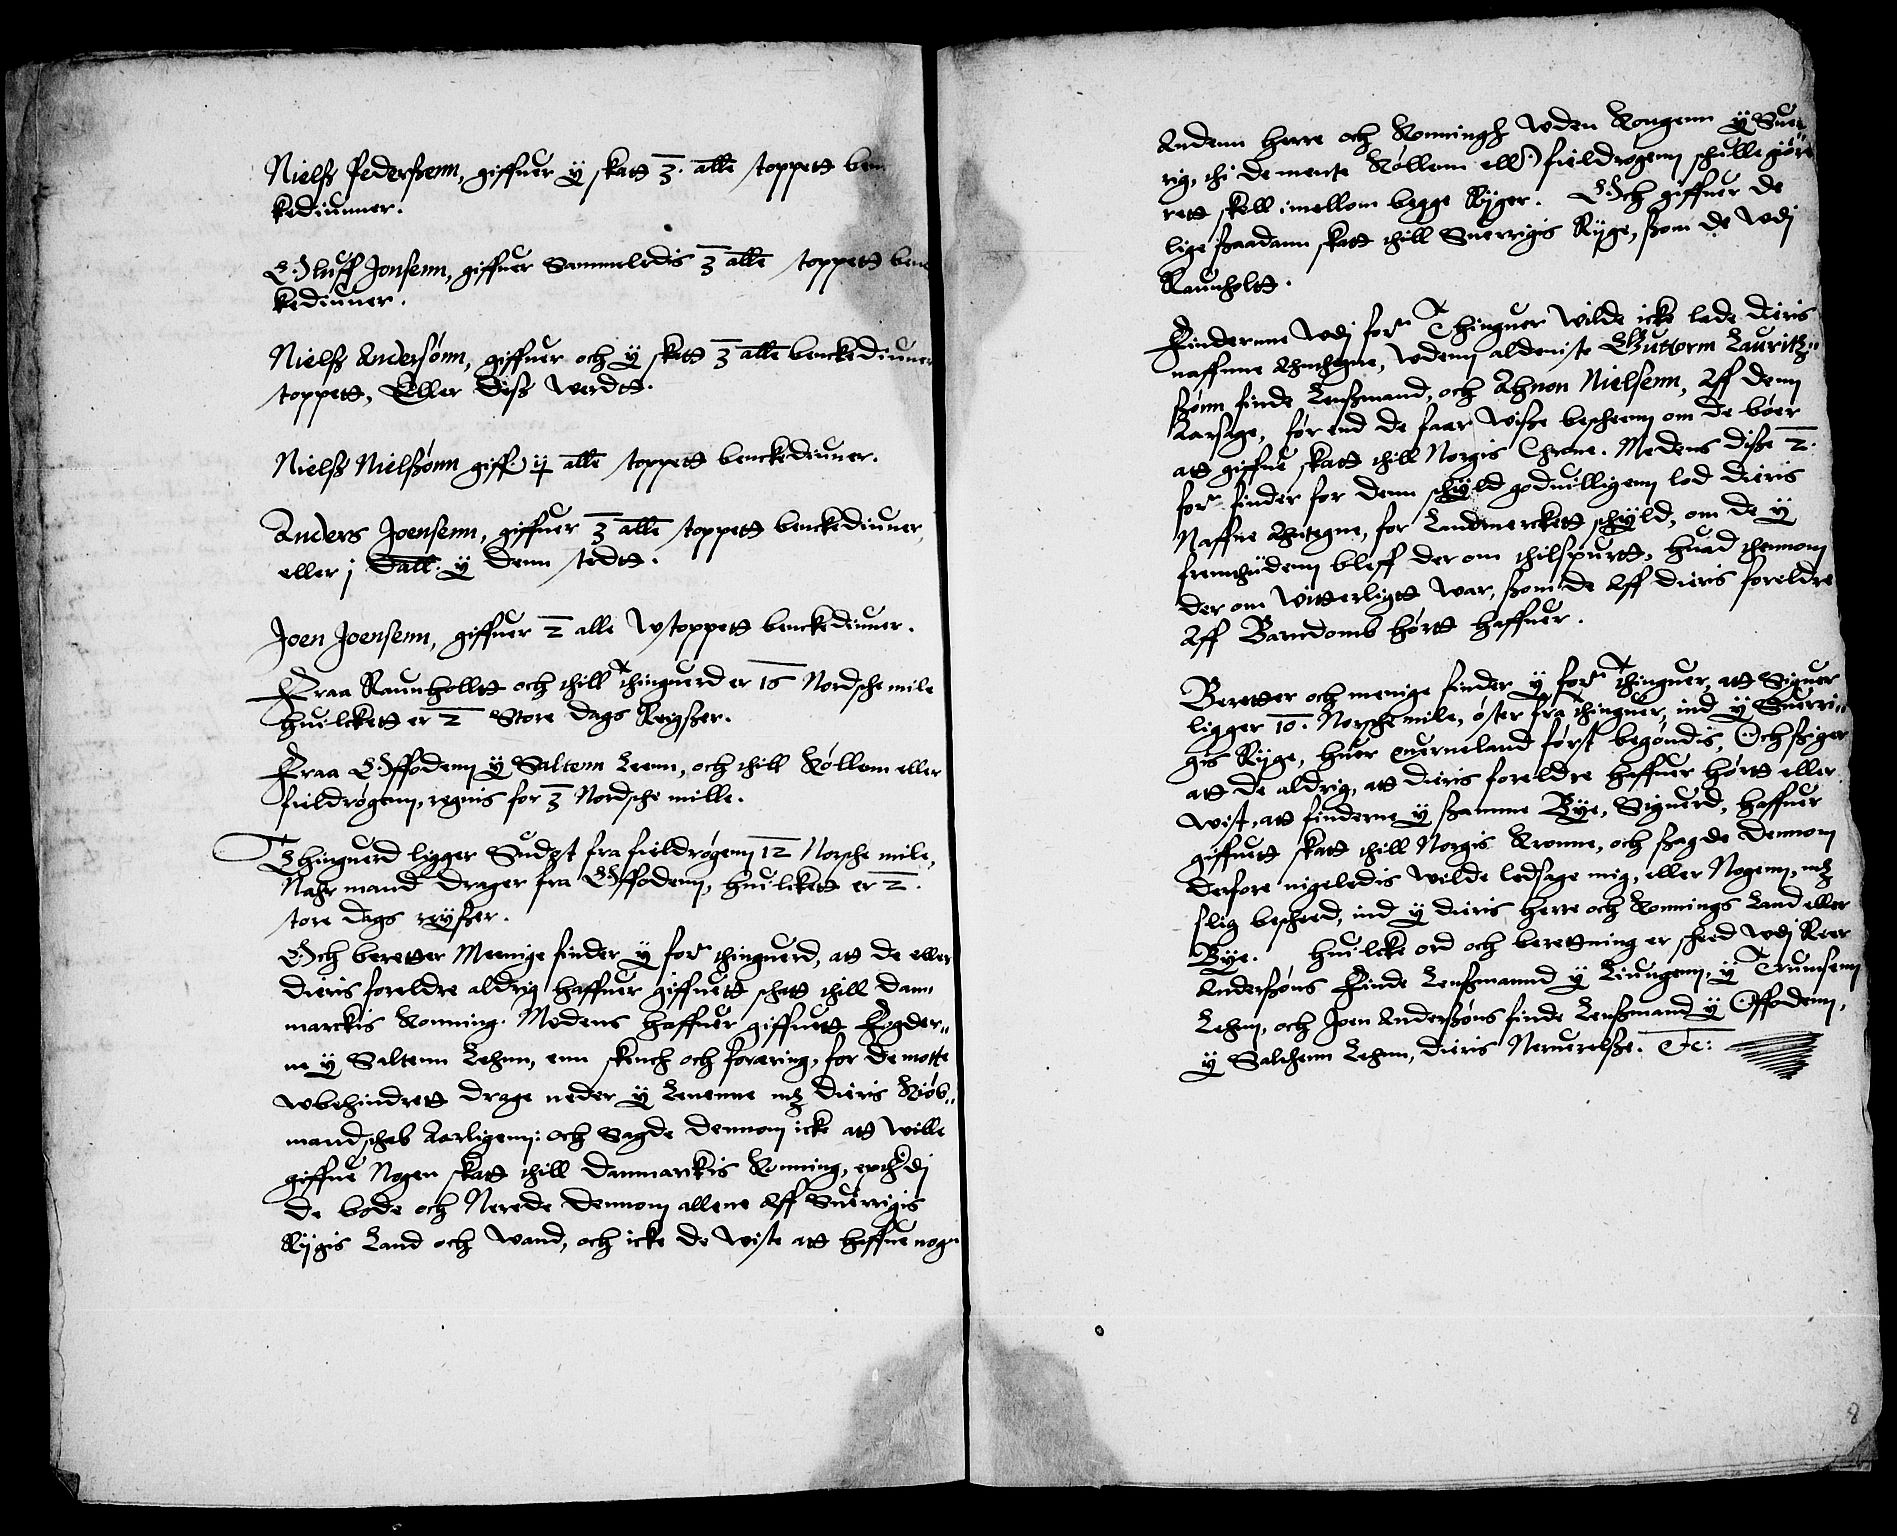 Nielß Pederßenn, giffuer ÿ skatt 3. alle toppett ben
kediuner.
Oluff Jonsenn, giffuer Sammeledis 3 alle toppett benc
kediuner.
Nielß Andersønn, giffuer och ÿ skatt 3 alle benckediuner
toppett, Eller diß werdtt.
Nielß Nielßønn giff. ÿ alle toppett benckediuner.
Anders Joensenn, giffuer 3 alle toppett benckediuner,
eller j dall: ÿ denn stedtt.
Joen Joensenn, giffuer 2 alle Vtoppett benckediuner.
Fraa Raunholltt och thill Thinguerd er 16 Nordsche mile
huilckett er 2 Store dags Reigßer.
Fraa Offodenn ÿ Saltenn Leenn, och thill Køllem eller
fieldrøgenn, regnis for 3 Nordsche mille.
Thinguerd ligger Sudost fra fieldrøgenn 12 Norsche mile,
Nahr mand drager fra Offodenn, huilckett er 2.
store dags reÿßer.
Och beretter Meenige finder ÿ forne thinguerd, att de eller
dieris foreldre aldrig haffuer giffuett schatt thill dann
marckis Konning. Medens haffuer giffuett Fogder"
ne ÿ Saltenn Lehnn, enn skench och foræring, for de motte
wbehindrett drage neder ÿ Lenenne mz dieris Kiøb"
mandschab Aarligenn: och Sagde dennom icke att wille
giffue Nogen skatt thill Danmarckis Konning, epthj
de bode och Nerede dennom allene Aff Suerrigis
Rÿgis Land och Wand, och icke de Wiste att haffue nogn
Andenn herre och Konningh vden Kongenn ÿ Suer"
rig, thi de mente Køllenn eller fieldrøgenn schulle giøre
rett skell imellom begge Rÿger. Och giffuer de
lige ßaadann skatt thill Suerrigis Rÿge, ßom de vdj
Raunholtt.
Finderrne vdj forne Thinguer wilde icke lade dieris
naffnne Antegne, vdenn aldeniste Guttorm Lauritz"
ßønn finde Lenßmand, och Amon Nielsenn, Aff denn
Aarsage, før end de faar Wiße bescheenn om de bøer
att giffue skatt thill Norgis Chrone. Medens diße 2.
forne finder for denn schÿld goduilligenn lod dieris
Naffne Antegne, for Landmerckett schÿld, om de ÿ
fremtidenn bleff der om thilspurtt, huad thennom
der om Witterligtt war, ßom de Aff dieris foreldre
Aff Barndomb hørtt haffuer.
Beretter och menige finder ÿ forne Thinguer, att Siguer
ligger 10. Norsche mile, øster fra thinguer, ind ÿ Suerri"
gis Rÿge, huor Querneland først begøndis, Och ßiger
att de aldrig, att dieris foreldre haffuer hørtt eller
wist, att finderne ÿ ßamme Bÿe, Siguerd, haffuer
giffuett skatt thill Norgis Kronne, och ßagde dennom
derfore nigeledis Wilde ledsage mig, eller Nogenn, mz
slig bescheed, ind ÿ dieris herre och Konnings Land eller
Bÿe. Huilcke ord och berettning er scheed vdj Peer
Anderßøns Finde Lenßmannd ÿ Liungenn, ÿ Trumsenn
Lehnn, och Joen Anderßøns finde Lenßmand ÿ Offodenn,
ÿ Salthenn Lehnn, dieris Neruerelße. Etc:
8